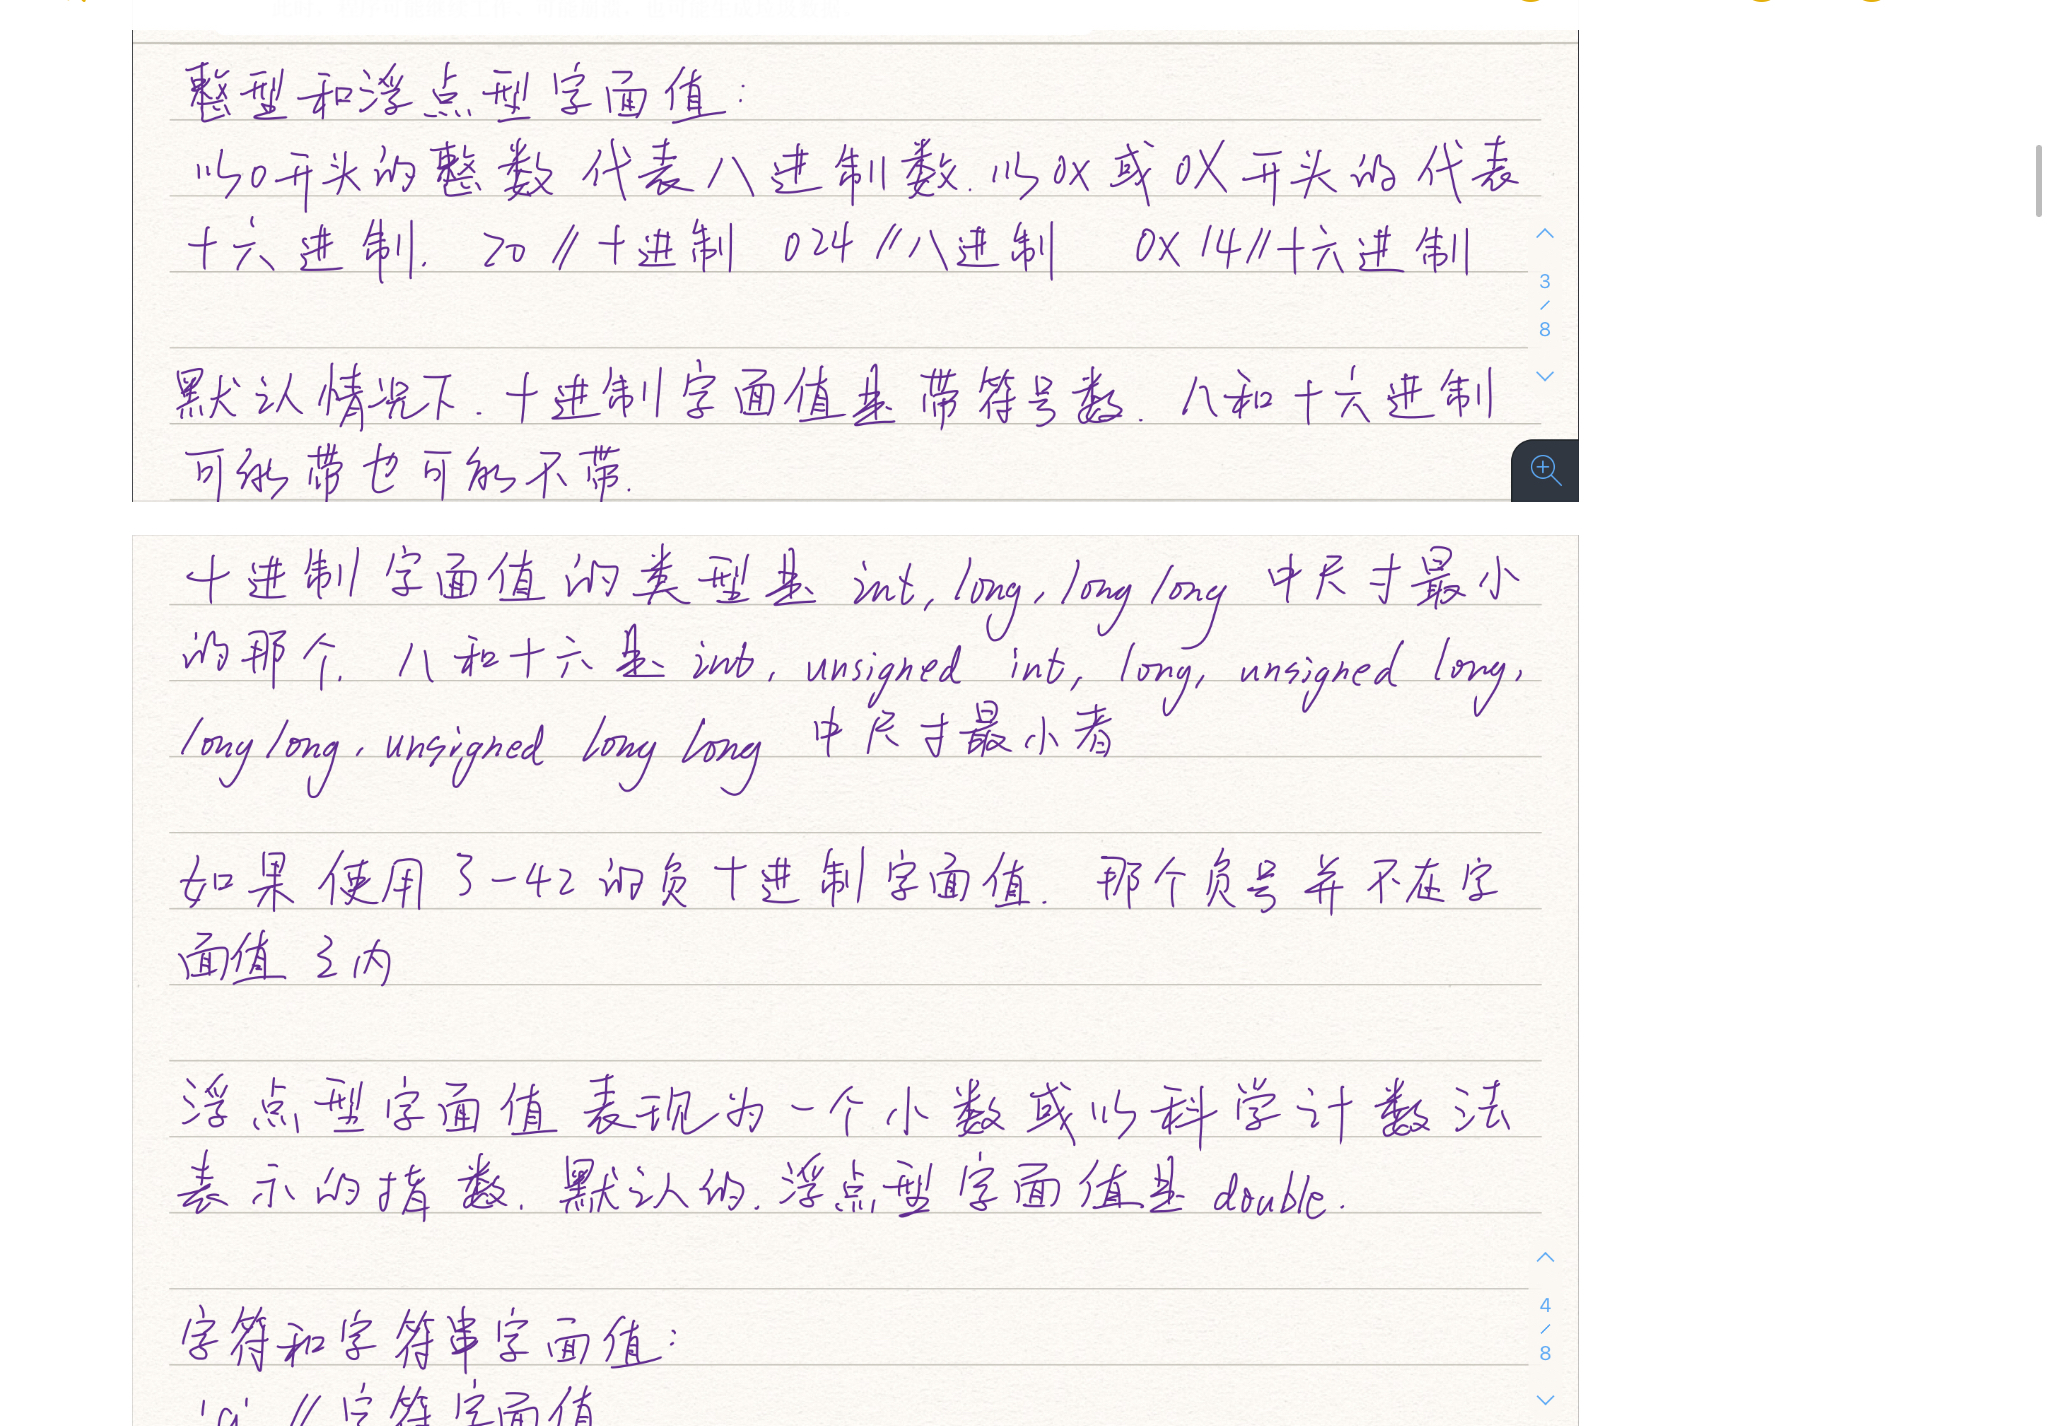 整型和浮点型字面值:
以0开头的整数代表八进制数.以0x或0X开头的代表
十六进制. 20 //十进制 024 //八进制 0X14//十六进制
默认情况下.十进制字面值是带符号数.八和十六进制
可能带也可能不带.
十进制字面值的类型是 int, long, long long 中尺寸最小
的那个. 八和十六是 int, unsigned int, long, unsigned long,
long long, unsigned long long 中尺寸最小者
如果使用了-42的负十进制字面值. 那个负号并不在字
面值之内
浮点型字面值表现为一个小数或以科学计数法
表示的指数.默认的.浮点型字面值是 double.
字符和字符串字面值:
'a' // 字符字面值
3
/
8
4
/
8